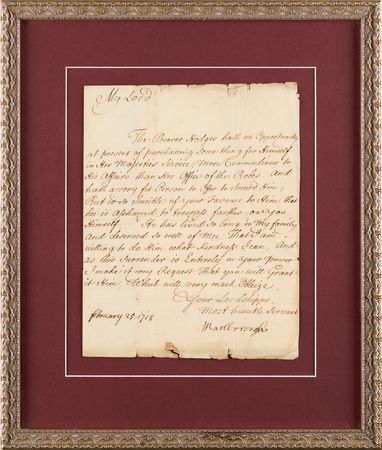 My Lord
The Bearer Hodges hath an Opportunity
at present of purchassing Some thing for Himself
in His Majesties Service, More Commodious to
His Affairs than His Office of the Robes And
hath a very fit Person to Offer to Succeed Him,
But is so Sensible of your Favours to Him that
hee is Ashamed to tresspass farther on you
Himself. He has lived So long in My family
And deserved so well of Me, That I am
willing to do Him what Kindness I can, And
as this Surrender is Entirely in your power
I make it my Request That you will Grant
it Him, Which will very much Obleize
Your Lordshipps
Most humble Servant
february 25. 1718
Marlborough